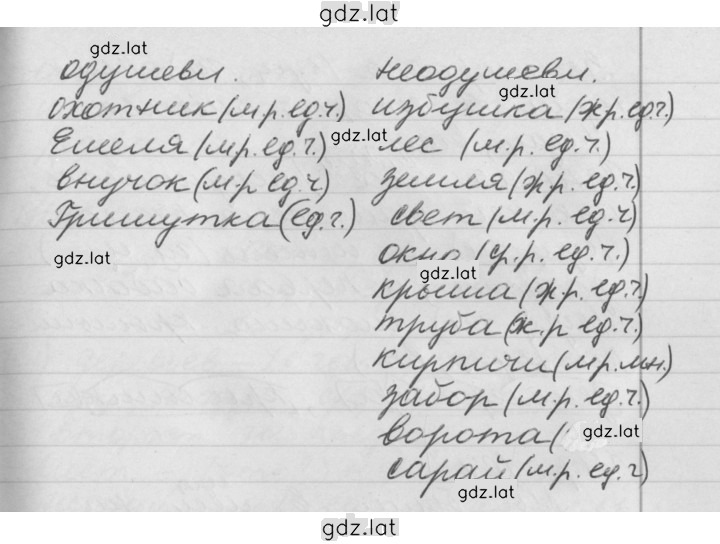 gdz.lat
gdz.lat
одушевл. неодушевл.
gdz.lat
охотник (м.р. ед.ч.) избушка (ж.р. ед.ч.)
gdz.lat
Емеля (м.р. ед.ч.) лес (м.р. ед.ч.)
внучок (м.р ед.ч) земля (ж.р. ед.ч.)
Гришутка (ед.ч.) свет (м.р. ед.ч)
gdz.lat окно (ср.р. ед.ч.)
gdz.lat
крыша (ж.р. ед.ч.)
труба (ж.р ед.ч.)
кирпичи (м.р. мн.)
забор (м.р. ед.ч.)
ворота ( gdz.lat
сарай (м.р. ед.ч)
gdz.lat
gdz.lat